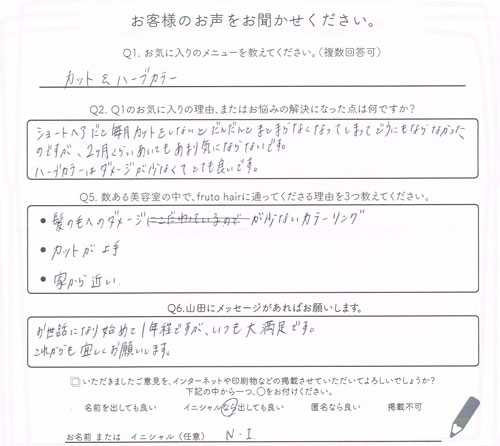 お客様のお声をお聞かせください。
Q1. お気に入りのメニューを教えてください。(複数回答可)
カット & ハーブカラー
Q2. Q1のお気に入りの理由、またはお悩みの解決になった点は何ですか?
ショートヘアだと毎月カットをしないとだんだんとまとまらなくなってしまってどうにもならなかった
のですが、2ヶ月くらいあいてもあまり気にならないです。
ハーブカラーはダメージが少なくてとても良いです。
Q5. 数ある美容室の中で、fruto hairに通ってくださる理由を3つ教えてください。
• 髪の毛へのダメージにこだわっているので が少ないカラーリング
• カットが上手
• 家から近い.
Q6.山田にメッセージがあればお願いします。
お世話になり始めて1年程ですが、いつも大満足です。
これからも宜しくお願いします。
□いただきましたご意見を、インターネットや印刷物などの掲載させていただいてよろしいでしょうか?
下記の中から一つ、○をお付けください。
名前を出しても良い イニシャルなら出しても良い 匿名なら良い 掲載不可
お名前 または イニシャル (任意) N・I.